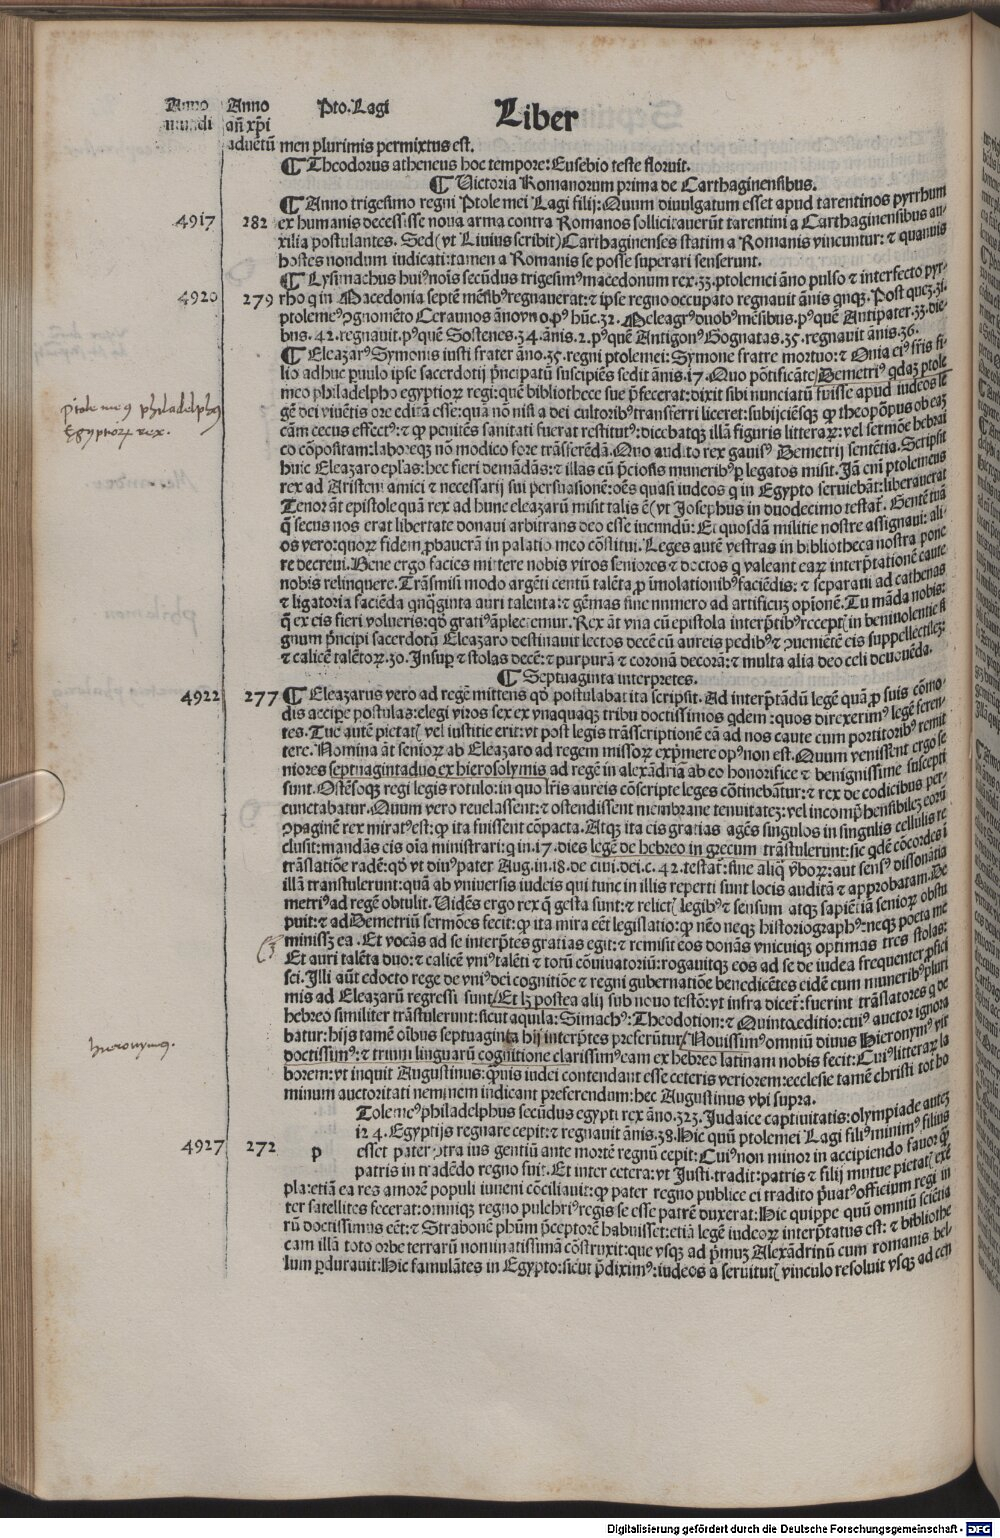 Anno Anno Pto. Lagi Liber
mundi añ xp̄i
aduētū men plurimis permixtus est.
¶ Theodorus atheneus hoc tempore: Eusebio teste floruit.
¶ Uictoria Romanorum prima de Carthaginensibus.
¶ Anno trigesimo regni Ptolemei Lagi filij: Quum diuulgatum esset apud tarentinos pyrrhum
4917 282 ex humanis decessisse noua arma contra Romanos sollicitauerūt tarentini a Carthaginensibus au-
xilia postulantes. Sed (vt Liuius scribit) Carthaginenses statim a Romanis vincuntur: ⁊ quamuis
hostes nondum iudicati: tamen a Romanis se posse superari senserunt.
¶ Lysimachus huiꝰ nois secūdus trigesimꝰ macedonum rex. 33. ptolemei āno pulso ⁊ interfecto pyr-
4920 279 rho q in Macedonia septē mēsibꝰ regnauerat: ⁊ ipse regno occupato regnauit ānis qnqꝫ. Post quē. 31.
ptolemeꝰ ꝯgnomēto Ceraunos āno vno. pꝰ hūc. 32. Meleagrꝰ duobꝰ mēsibus. pꝰ quē Antipater. 33. die-
bus. 42. regnauit. pꝰ quē Sostenes. 34. ānis. 2. pꝰ quē Antigonꝰ Gognatas. 35. regnauit ānis. 36.
¶ Eleazarꝰ Symonis iusti frater āno. 35. regni ptolemei: Symone fratre mortuo: ⁊ Onia eiꝰ fr̄is fi-
lio adhuc paruulo ipse sacerdotij p̄ncipatū suscipiēs sedit ānis. 17. Quo pōtificāte Demetriꝰ qdaꝫ ptole
ptolemeus philadelphus meo philadelpho egyptioꝝ regi: quē bibliothece sue p̄fecerat: dixit sibi nunciatū fuisse apud iudeos le
Egyptioꝝ rex. gē dei viuētis ore editā esse: quā nō nisi a dei cultoribꝰ trāsferri liceret: subijciēsqꝫ ꝙ theopōpus ob eaꝫ
cām cecus effectꝰ: ⁊ ꝙ penitēs sanitati fuerat restitutꝰ: dicebatqꝫ illā figuris litteraꝝ: vel sermōe hebrai
co cōpositam: laboreqꝫ nō modico fore trāsferēdā. Quo audito rex gauisꝰ Demetrij sentētia. Scripsit
huic Eleazaro ep̄las: hec fieri demādās: ⁊ illas cū p̄ciosis muneribꝰ ꝑ legatos misit. Jā em̄ ptolemeus
rex ad Aristeni amici ⁊ necessarij sui persuasionē: oēs quasi iudeos q in Egypto seruiebāt: liberauerat
Tenor āt epistole quā rex ad hunc eleazarū misit talis ē (vt Josephus in duodecimo testat̄. Gentē tuā
q̄ secus nos erat libertate donaui arbitrans deo esse iucundū: Et quosdā militie nostre assignaui: ali-
os vero: quoꝝ fidem ꝓbauerā in palatio meo cōstitui. Leges autē vestras in bibliotheca nostra pone
re decreui. Bene ergo facies mittere nobis viros seniores ⁊ doctos q valeant eaꝝ interp̄tationē caute
nobis relinquere. Trāsmisi modo argēti centū talēta ꝓ īmolationibꝰ faciēdis: ⁊ separaui ad cathenas
⁊ ligatoria faciēda qnqginta auri talenta: ⁊ gēmas sine numero ad artificuꝫ opionē. Tu māda nobis:
q̄ ex eis fieri volueris: qd gratiꝰ āplectemur. Rex āt vna cū epistola interp̄tibꝰ receptꝭ in beniuolentie si
gnum p̄ncipi sacerdotū Eleazaro destinauit lectos decē cū aureis pedibꝰ ⁊ ꝯueniētē eis suppellectileꝫ:
⁊ calicē talētoꝝ. 30. Insuꝑ ⁊ stolas decē: ⁊ purpurā ⁊ coronā decorā: ⁊ multa alia deo celi deuouēda.
¶ Septuaginta interpretes.
4922 277 ¶ Eleazarus vero ad regē mittens qd postulabat ita scripsit. Ad interp̄tādū legē quā ꝓ suis cōmo-
dis accipe postulas: elegi viros sex ex vnaquaqꝫ tribu doctissimos qdem: quos direxerimꝰ legē feren-
tes. Tue autē pietatꝭ vel iustitie erit: vt post legis trāsscriptionē eā ad nos caute cum portitoribꝰ remit
tere. Nomina āt senioꝝ ab Eleazaro ad regem missoꝝ exp̄mere opꝰ non est. Quum venissent ergo se
niores septuagintaduo ex hierosolymis ad regē in alexādriā ab eo honorifice ⁊ benignissime suscepti
sunt. Ostēsoqꝫ regi legis rotulo: in quo lr̄is aureis cōscripte leges cōtinebātur: ⁊ rex de codicibus per-
cunctabatur. Quum vero reuelassent: ⁊ ostendissent membrane tenuitateꝫ: vel incomp̄hensibilēꝫ eorū
ꝯpaginē rex miratꝰ est: ꝙ ita fuissent cōpacta. Atqꝫ ita eis gratias agēs singulos in singulis cellulis re
clusit: mandās eis oīa ministrari: q in. 17. dies legē de hebreo in grecum trāstulerunt: sic qdē cōcordes ī
trāslatiōe radē: qd vt diuꝰ pater Aug. in. 18. de ciui. dei. c. 42. testat̄: sine aliq v̄boꝝ: aut sensꝰ dissonātia
illā transtulerunt: quā ab vniuersis iudeis qui tunc in illis reperti sunt locis auditā ⁊ approbatam. De
metriꝰ ad regē obtulit. Uidēs ergo rex q̄ gesta sunt: ⁊ relictꝭ legibꝰ ⁊ sensum atqꝫ sapiētiā senioꝝ obstu
puit: ⁊ ad Demetriū sermōes fecit: ꝙ ita mira eēt legislatio: ꝙ nēo neqꝫ historiographꝰ: neqꝫ poeta me
minissꝫ ea. Et vocās ad se interp̄tes gratias egit: ⁊ remisit eos donās vnicuiqꝫ optimas tres stolas:
Et auri talēta duo: ⁊ calicē vniꝰ talēti ⁊ totū cōuiuatoriū: rogauitqꝫ eos ad se de iudea frequenter ꝓfici
sci. Illi aūt edocto rege de vniꝰ dei cognitiōe ⁊ regni gubernatiōe benedicētes eidē cum muneribꝰ pluri
mis ad Eleazarū regressi sunt. Et lꝫ postea alij sub nouo testō: vt infra dicet̄: fuerint trāslatores q de
hebreo similiter trāstulerunt: sicut aquila: Simachꝰ: Theodotion: ⁊ Quinta editio: cuiꝰ auctor ignora
hieronymus. batur: hijs tamē oībus septuaginta hij interp̄tes preferūtur. Nouissimꝰ omniū diuus Hieronymꝰ vir
doctissimꝰ: ⁊ trium linguarū cognitione clarissimꝰ eam ex hebreo latinam nobis fecit: Cuiꝰ litteraꝝ la
borem: vt inquit Augustinus: q̄uis iudei contendant esse ceteris veriorem: ecclesie tamē christi tot ho
minum auctoritati neminem iudicant preferendum: hec Augustinus vbi supra.
Tolemeꝰ philadelphus secūdus egypti rex āno. 323. Judaice captiuitatis: olympiade auteꝫ
124. Egyptijs regnare cepit: ⁊ regnauit ānis. 38. Hic quū ptolemei Lagi filiꝰ minimꝰ filius
4927 272 p esset pater ꝯtra ius gentiū ante mortē regnū cepit: Cuiꝰ non minor in accipiendo fauor q̄
patris in tradēdo regno fuit. Et inter cetera: vt Justi. tradit: patris ⁊ filij mutue pietatꝭ exē
pla: etiā ea res amorē populi iuueni cōciliauit: ꝙ pater regno publice ei tradito p̄uatꝰ officium regi in
ter satellites fecerat: omniqꝫ regno pulchriꝰ regis se esse patrē duxerat: Hic quippe quū omniū sciētia
rū doctissimus eēt: ⁊ Strabonē phūm p̄ceptorē habuisset: etiā legē iudeoꝝ interp̄tatus est: ⁊ bibliothe
cam illā toto orbe terrarū nominatissimā cōstruxit: que vsqꝫ ad p̄muꝫ Alexādrinū cum romanis bel-
lum ꝑdurauit: Hic famulātes in Egypto: sicut p̄diximꝰ: iudeos a seruitutꝭ vinculo resoluit vsqꝫ ad cen
Digitalisierung gefördert durch die Deutsche Forschungsgemeinschaft - DFG